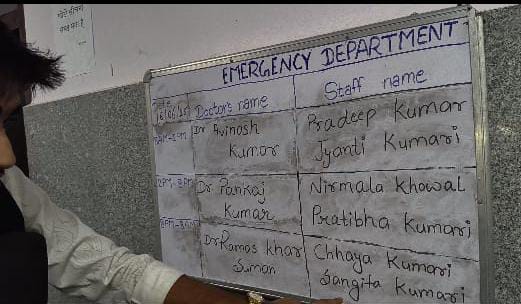 EMERGENCY DEPARTMENT
Date
Doctor's name
Staff name
Dr Avinash
Kumar
Pradeep Kumar
Jyanti Kumari
2PM-8PM
Dr. Pankaj
Kumar
Nirmala Khowal
Pratibha Kumari
8PM-8AM
Dr Ramas Khar
Suman
Chhaya Kumari
Sangita Kumari